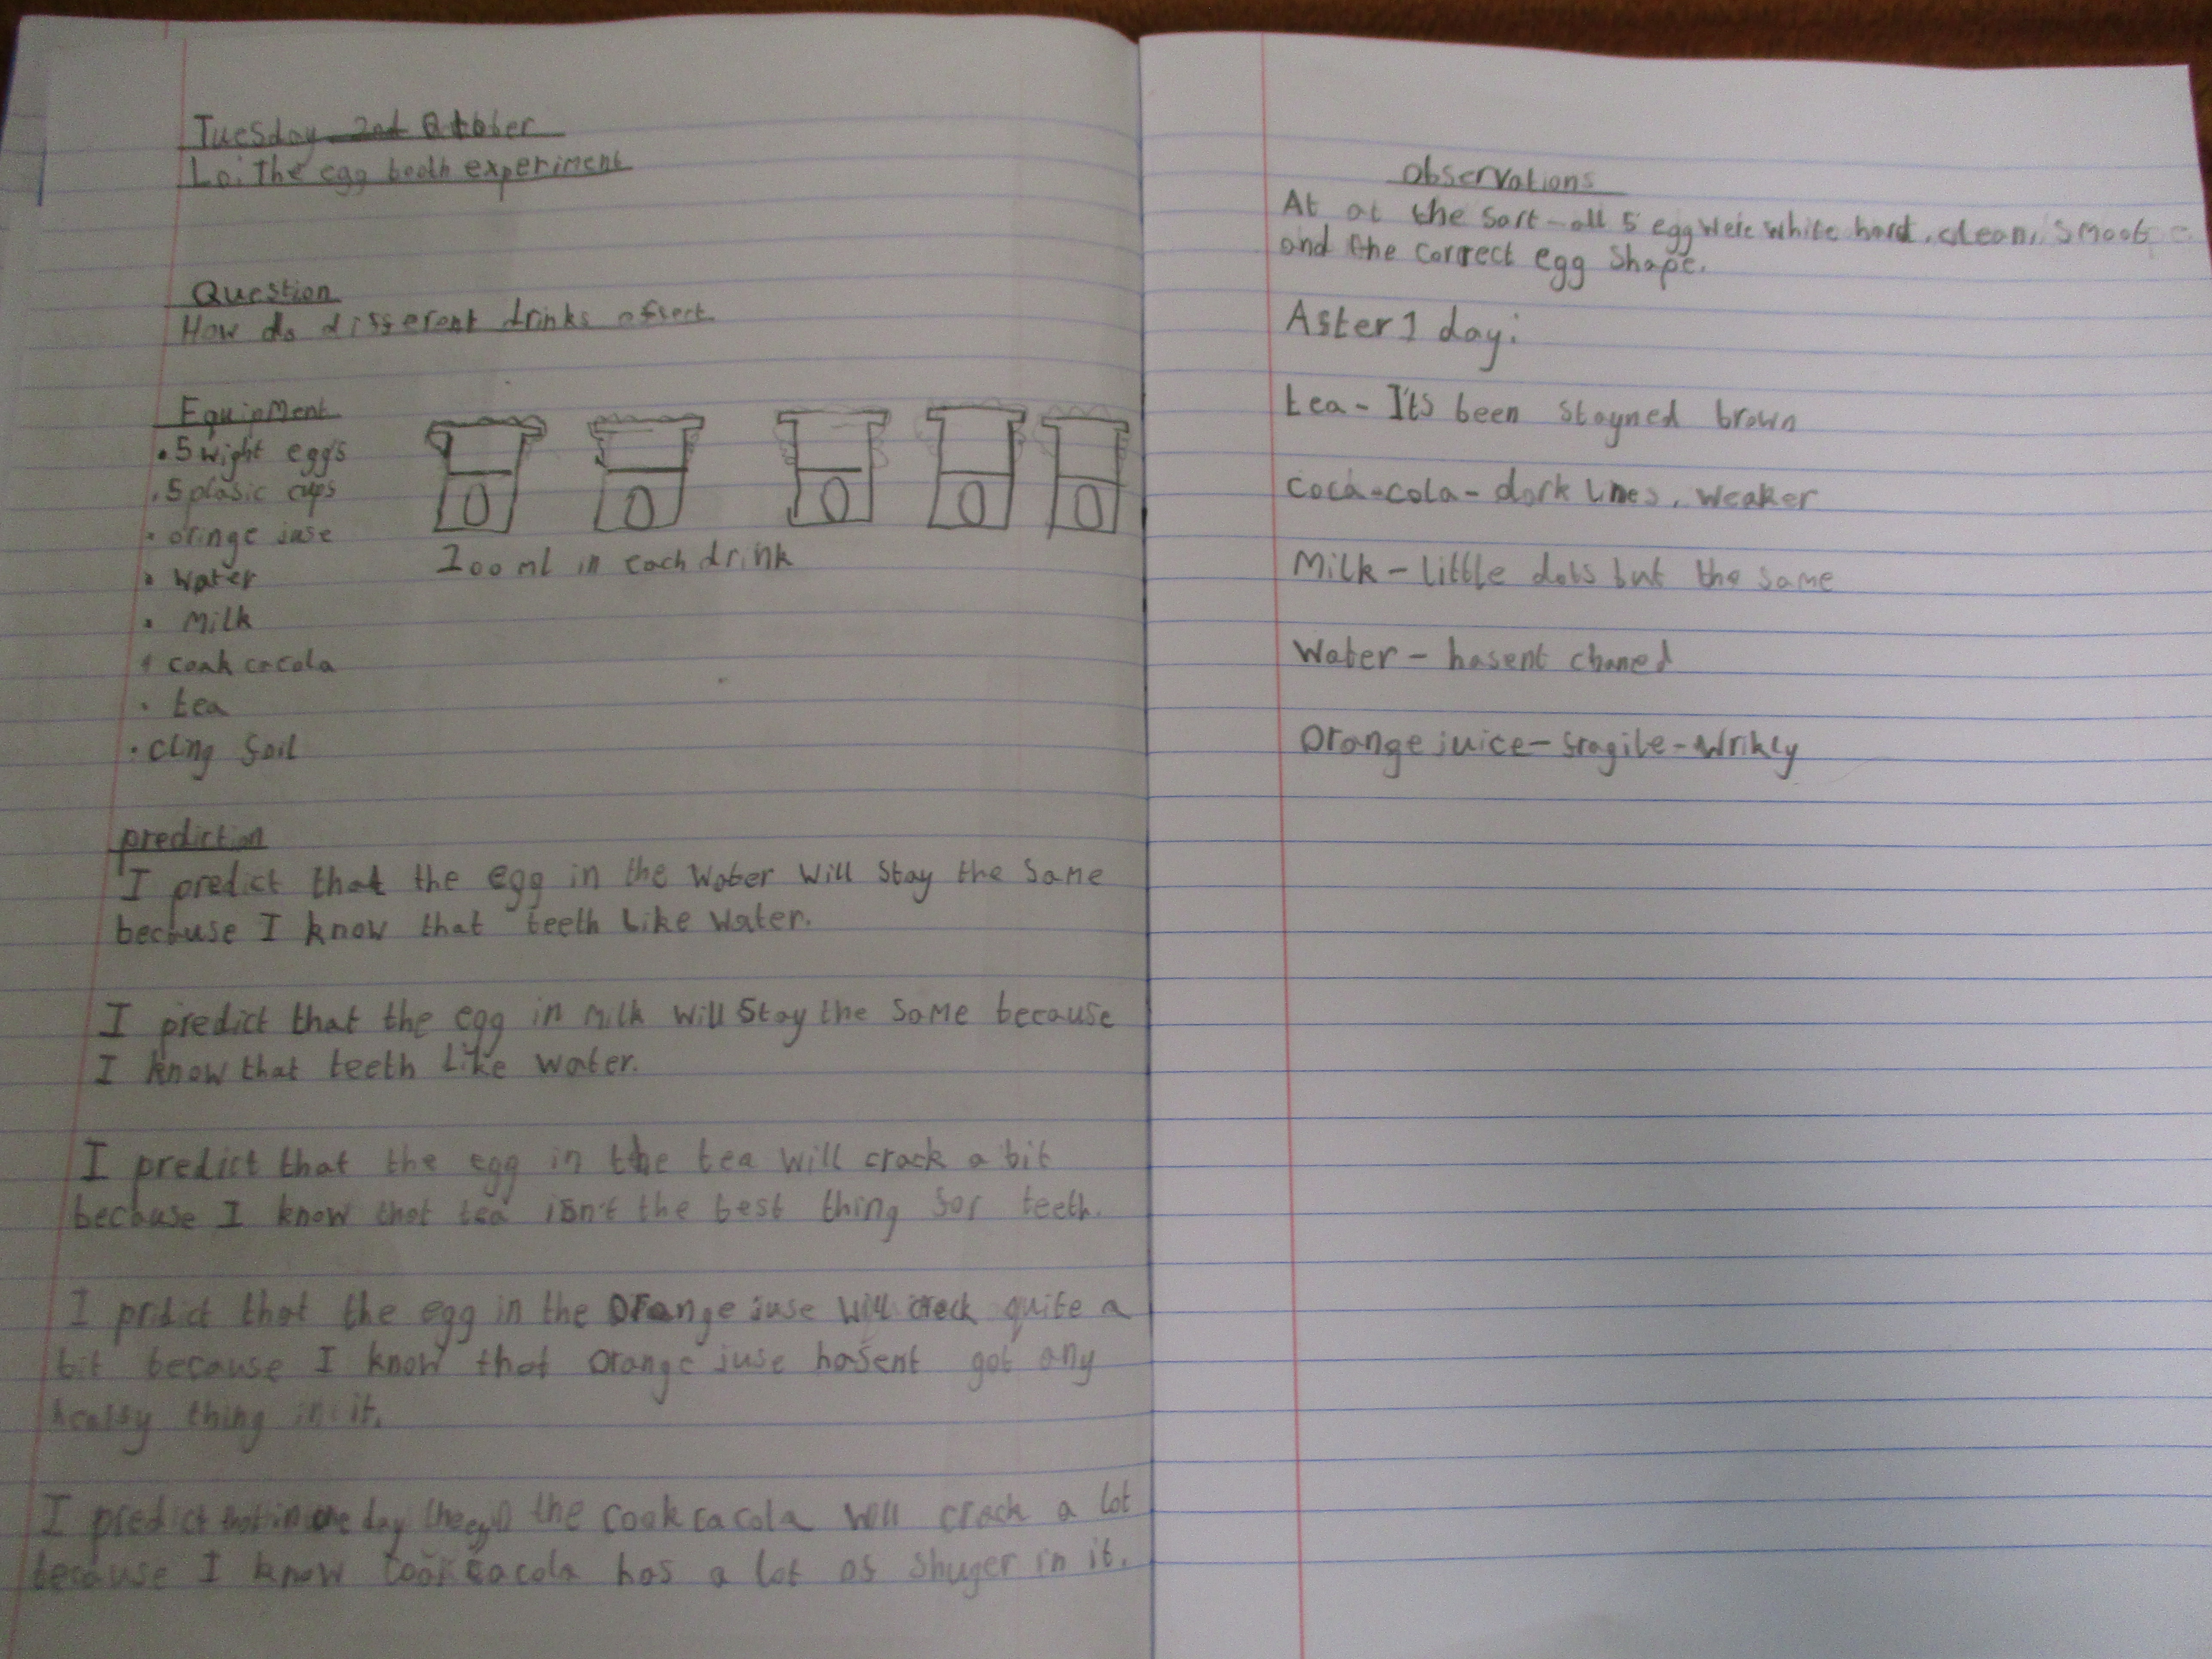 Tuesday 2nd October
Lo: The egg tooth experiment
Question
How do different drinks afect
Equipment
• 5 wight eggs
• 5 plasic cups
• oringe juse
• Water
• Milk
• coak cacola
• tea
• cling foil
200 ml in each drink
prediction
I predict that the egg in the water will stay the same
because I know that teeth like water.
I predict that the egg in milk will stay the same because
I know that teeth like water.
I predict that the egg in the tea will crack a bit
because I know that tea isn't the best thing for teeth.
I prdict that the egg in the orange juse will creck quite a
bit because I know that orange juse hasent got any
healfy thing in it.
I predict that in one day the egg in the cook cacola will crack a lot
because I know cook cacola has a lot of shuger in it.
Observations
At at the sart - all 5 egg were white hard, clean, smoot
and the correct egg shape.
After 1 day:
tea - It's been stayned brown
coca-cola - dark lines, weaker
Milk - little dots but the same
Water - hasent chaned
Orange juice - fragile - wrikly